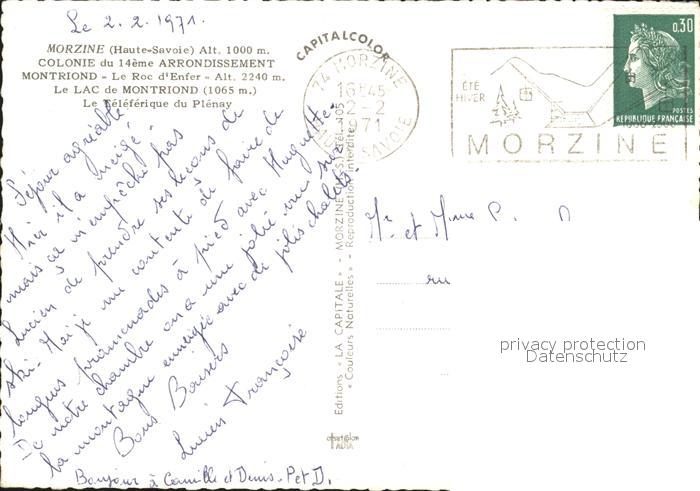 Le 2.2.1971.
MORZINE (Haute-Savoie) Alt. 1000 m.
COLONIE du 14ème ARRONDISSEMENT
MONTRIOND - Le Roc d'Enfer - Alt. 2240 m.
Le LAC de MONTRIOND (1065 m.)
Le Téléférique du Plénay
Séjour agréable.
Hier il a neigé
mais ça n'empêche pas
Lucien de prendre ses leçons de
ski. Moi je me contente de faire de
longues promenades à pied avec Huguette.
De notre chambre on a une jolie vue sur
la montagne enneigée avec de jolis chalets.
Bons Baisers
Lucien Françoise
Bonjour à Camille et Denis. P et D.
CAPITALCOLOR
Editions « LA CAPITALE » - MORZINE
« Couleurs Naturelles » - Reproduction interdite
74 MORZINE
16H45
2-2
1971
HAUTE SAVOIE
ÉTÉ
HIVER
MORZINE
0,30
POSTES
REPUBLIQUE FRANÇAISE
Mr et Mme P. D
ru
privacy protection
Datenschutz